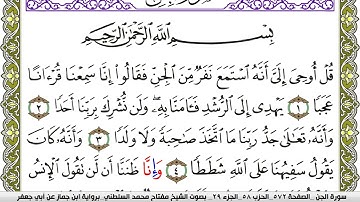 بِسْمِ ٱللَّهِ ٱلرَّحْمَٰنِ ٱلرَّحِيمِ
قُلْ أُوحِيَ إِلَيَّ أَنَّهُ ٱسْتَمَعَ نَفَرٌ مِّنَ ٱلْجِنِّ فَقَالُوٓا۟ إِنَّا سَمِعْنَا قُرْءَانًا
عَجَبًا ١ يَهْدِىٓ إِلَى ٱلرُّشْدِ فَـَٔامَنَّا بِهِۦ وَلَن نُّشْرِكَ بِرَبِّنَآ أَحَدًا ٢
وَأَنَّهُۥ تَعَٰلَىٰ جَدُّ رَبِّنَا مَا ٱتَّخَذَ صَٰحِبَةً وَلَا وَلَدًا ٣ وَأَنَّهُۥ كَانَ
يَقُولُ سَفِيهُنَا عَلَى ٱللَّهِ شَطَطًا ٤ وَإِنَّا ظَنَنَّآ أَن لَّن تَقُولَ ٱلْإِنسُ
سورة الجن - الصفحة ٥٧٢ - الحزب ٥٨ - الجزء ٢٩ - بصوت الشيخ مفتاح محمد السلطني - برواية ابن جماز عن أبي جعفر